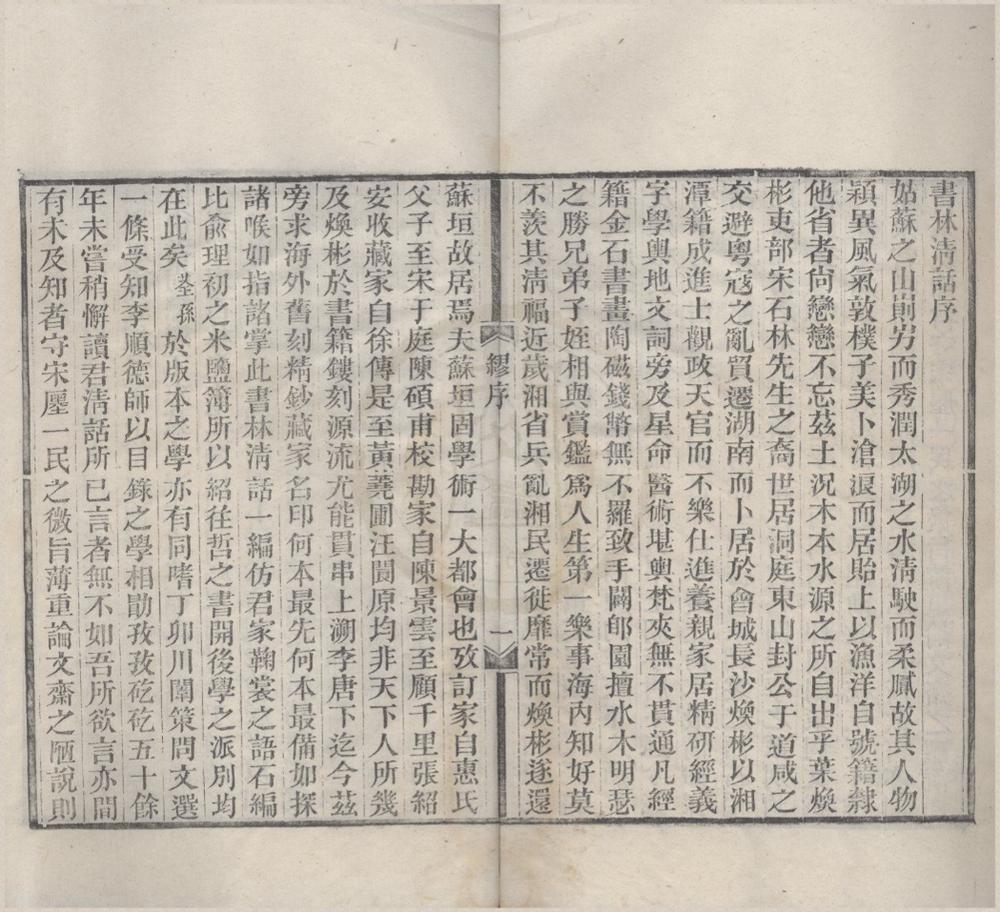 書林清話序
姑蘇之山崱屴而秀潤太湖之水清駛而柔膩故其人物
穎異風氣敦樸子美卜滄浪而居貽上以漁洋自號籍隸
他省者尙戀戀不忘茲土況木本水源之所自出乎葉煥
彬吏部宋石林先生之裔世居洞庭東山封公于道咸之
交避粵寇之亂貿遷湖南而卜居於會城長沙煥彬以湘
潭籍成進士觀政天官而不樂仕進養親家居精研經義
字學輿地文詞旁及星命醫術堪輿梵夾無不貫通凡經
籍金石書畫陶磁錢幣無不羅致手闢郋園擅水木明瑟
之勝兄弟子姪相與賞鑑爲人生第一樂事海內知好莫
不羨其清福近歲湘省兵亂湘民遷徙靡常而煥彬遂還
繆序
一
蘇垣故居焉夫蘇垣固學術一大都會也攷訂家自惠氏
父子至宋于庭陳碩甫校勘家自陳景雲至顧千里張紹
安收藏家自徐傳是至黃蕘圃汪閬原均非天下人所幾
及煥彬於書籍鏤刻源流尤能貫串上溯李唐下迄今茲
旁求海外舊刻精鈔藏家名印何本最先何本最備如探
諸喉如指諸掌此書林清話一編仿君家鞠裳之語石編
比俞理初之米鹽簿所以紹往哲之書開後學之派別均
在此矣荃孫於版本之學亦有同嗜丁卯川闈策問文選
一條受知李順德師以目錄之學相勖孜孜矻矻五十餘
年未嘗稍懈讀君清話所已言者無不如吾所欲言亦間
有未及知者守宋廛一民之微旨薄重論文齋之陋說則